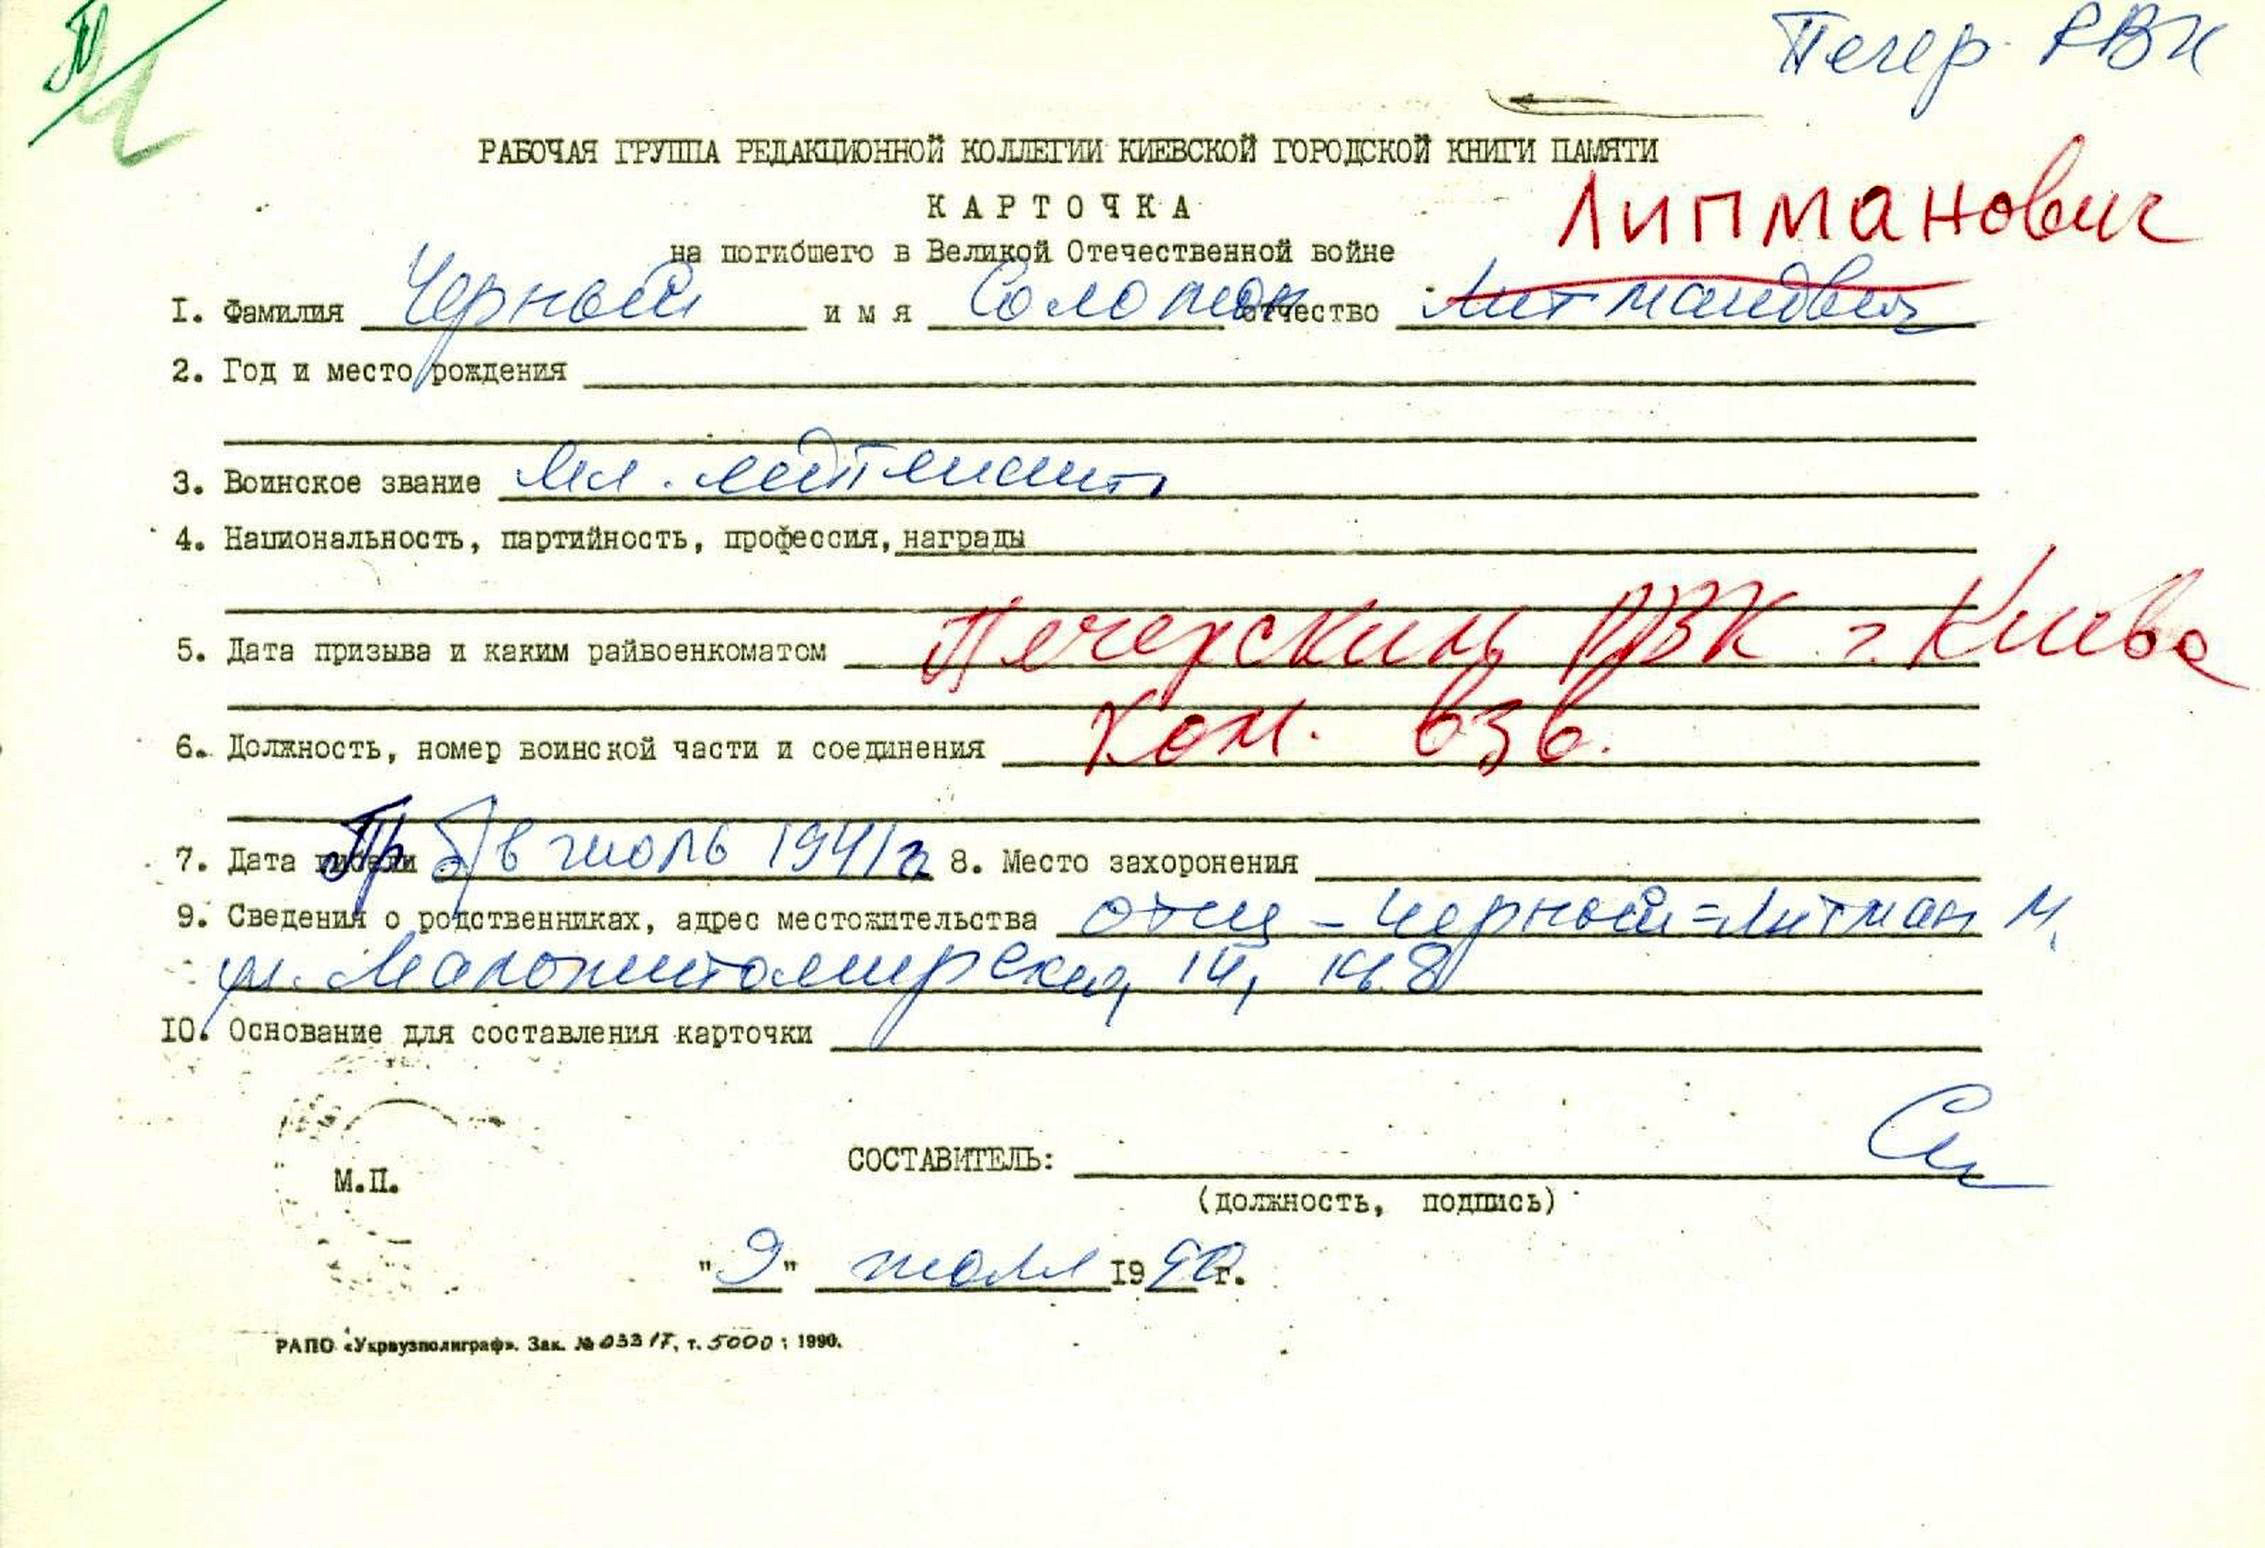 Печер. РВК
РАБОЧАЯ ГРУППА РЕДАКЦИОННОЙ КОЛЛЕГИИ КИЕВСКОЙ ГОРОДСКОЙ КНИГИ ПАМЯТИ
КАРТОЧКА
Липманович
на погибшего в Великой Отечественной войне
I. Фамилия Черный имя Соломон отчество Литманович
2. Год и место рождения
3. Воинское звание мл. лейтенант
4. Национальность, партийность, профессия, награды
5. Дата призыва и каким райвоенкоматом Печерским РВК г. Киева
6. Должность, номер воинской части и соединения Ком. взв.
7. Дата гибели Пр б/в июль 1941 г 8. Место захоронения
9. Сведения о родственниках, адрес местожительства отец - Черный Литман М.
ул. Маложитомирская, 14, 8
10. Основание для составления карточки
СОСТАВИТЕЛЬ:
М.П.
(должность, подпись)
"9" июля 1990 г.
РАПО «Укрвузполиграф». Зак. № 03317, т. 5000; 1990.